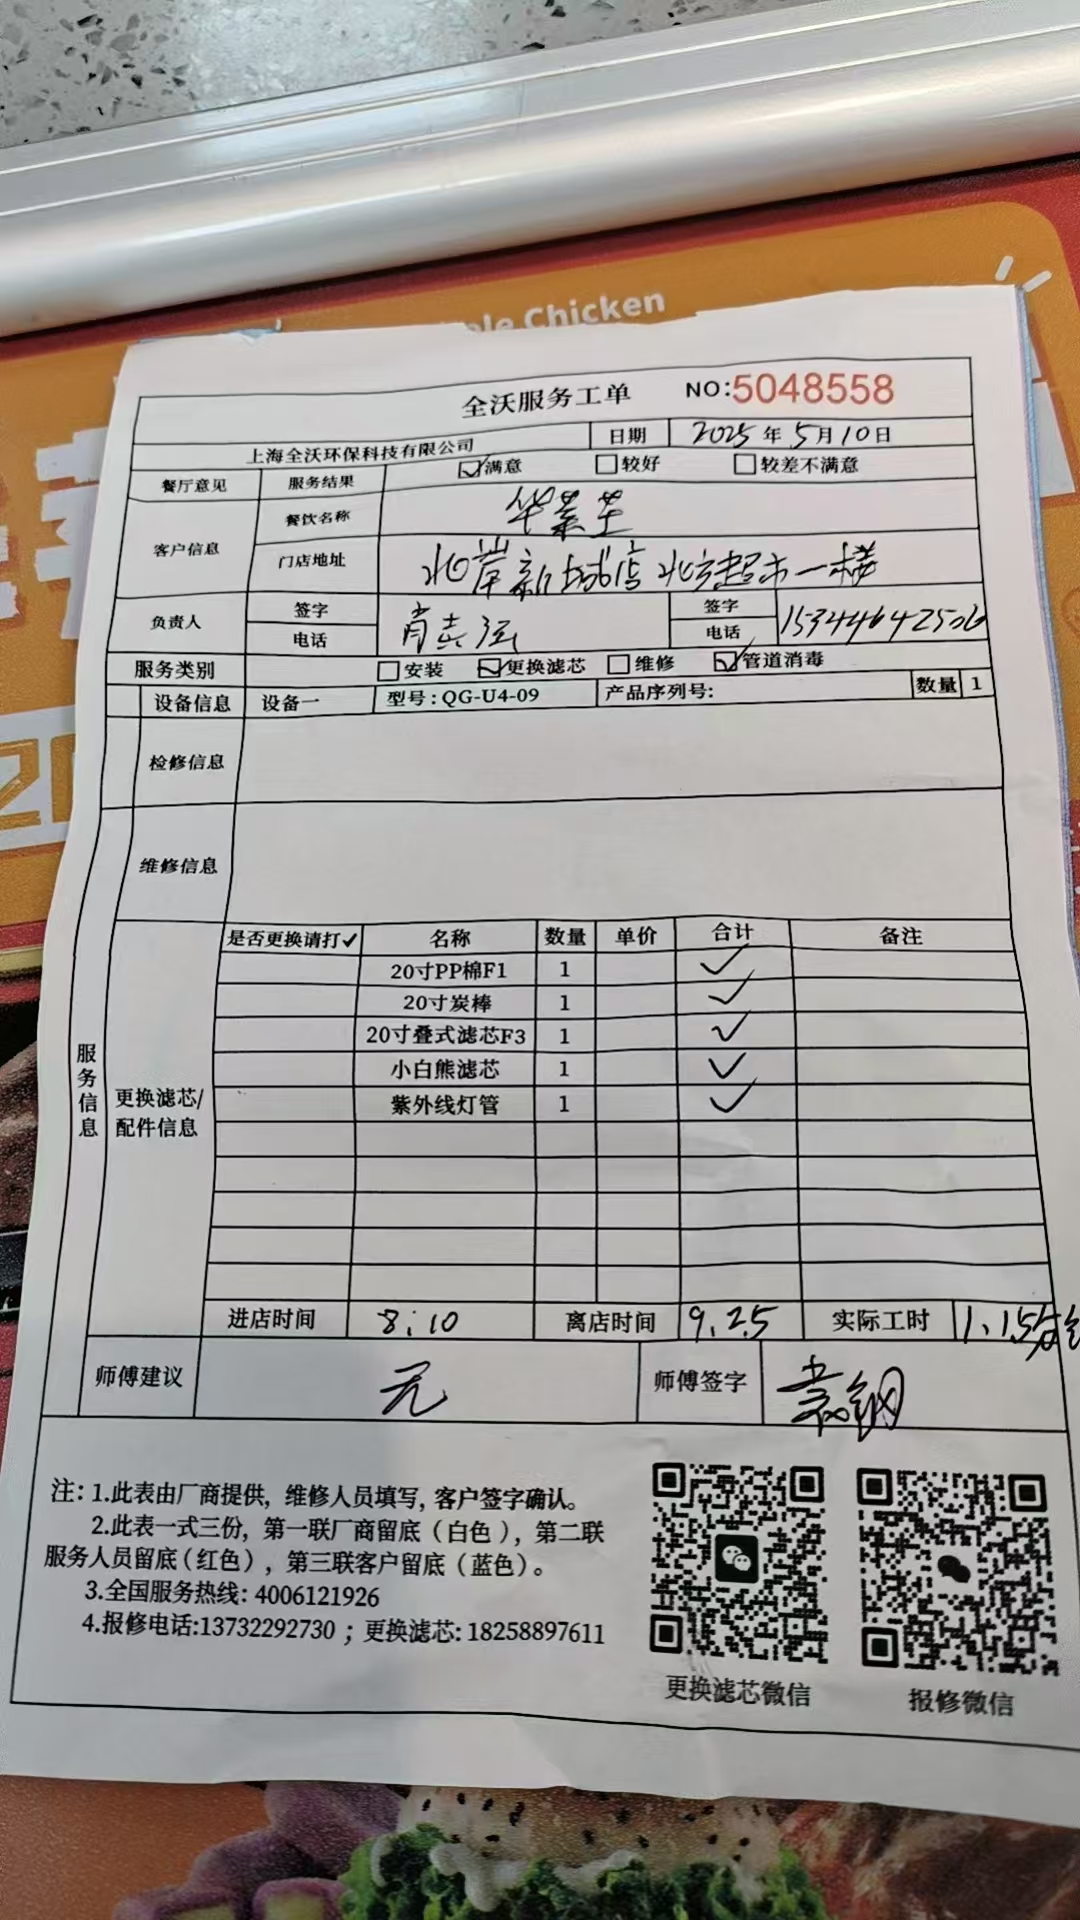 Chicken
全沃服务工单 NO:5048558
上海全沃环保科技有限公司 日期 2025年5月10日
餐厅意见 服务结果 ☑满意 □较好 □较差不满意
客户信息 餐饮名称 华莱士
门店地址 北岸新城店 北方超市一楼
负责人 签字 签字
电话 肖 电话 15344642506
服务类别 □安装 ☑更换滤芯 □维修 ☑管道消毒
设备信息 设备一 型号:QG-U4-09 产品序列号: 数量 1
检修信息
维修信息
服务信息
更换滤芯/配件信息
是否更换请打✓ 名称 数量 单价 合计 备注
20寸PP棉F1 1 ✓
20寸炭棒 1 ✓
20寸叠式滤芯F3 1 ✓
小白熊滤芯 1 ✓
紫外线灯管 1 ✓
进店时间 8:10 离店时间 9.25 实际工时 1.15分
师傅建议 无 师傅签字 袁钢
注:1.此表由厂商提供,维修人员填写,客户签字确认。
2.此表一式三份,第一联厂商留底(白色),第二联
服务人员留底(红色),第三联客户留底(蓝色)。
3.全国服务热线:4006121926
4.报修电话:13732292730;更换滤芯:18258897611
更换滤芯微信 报修微信